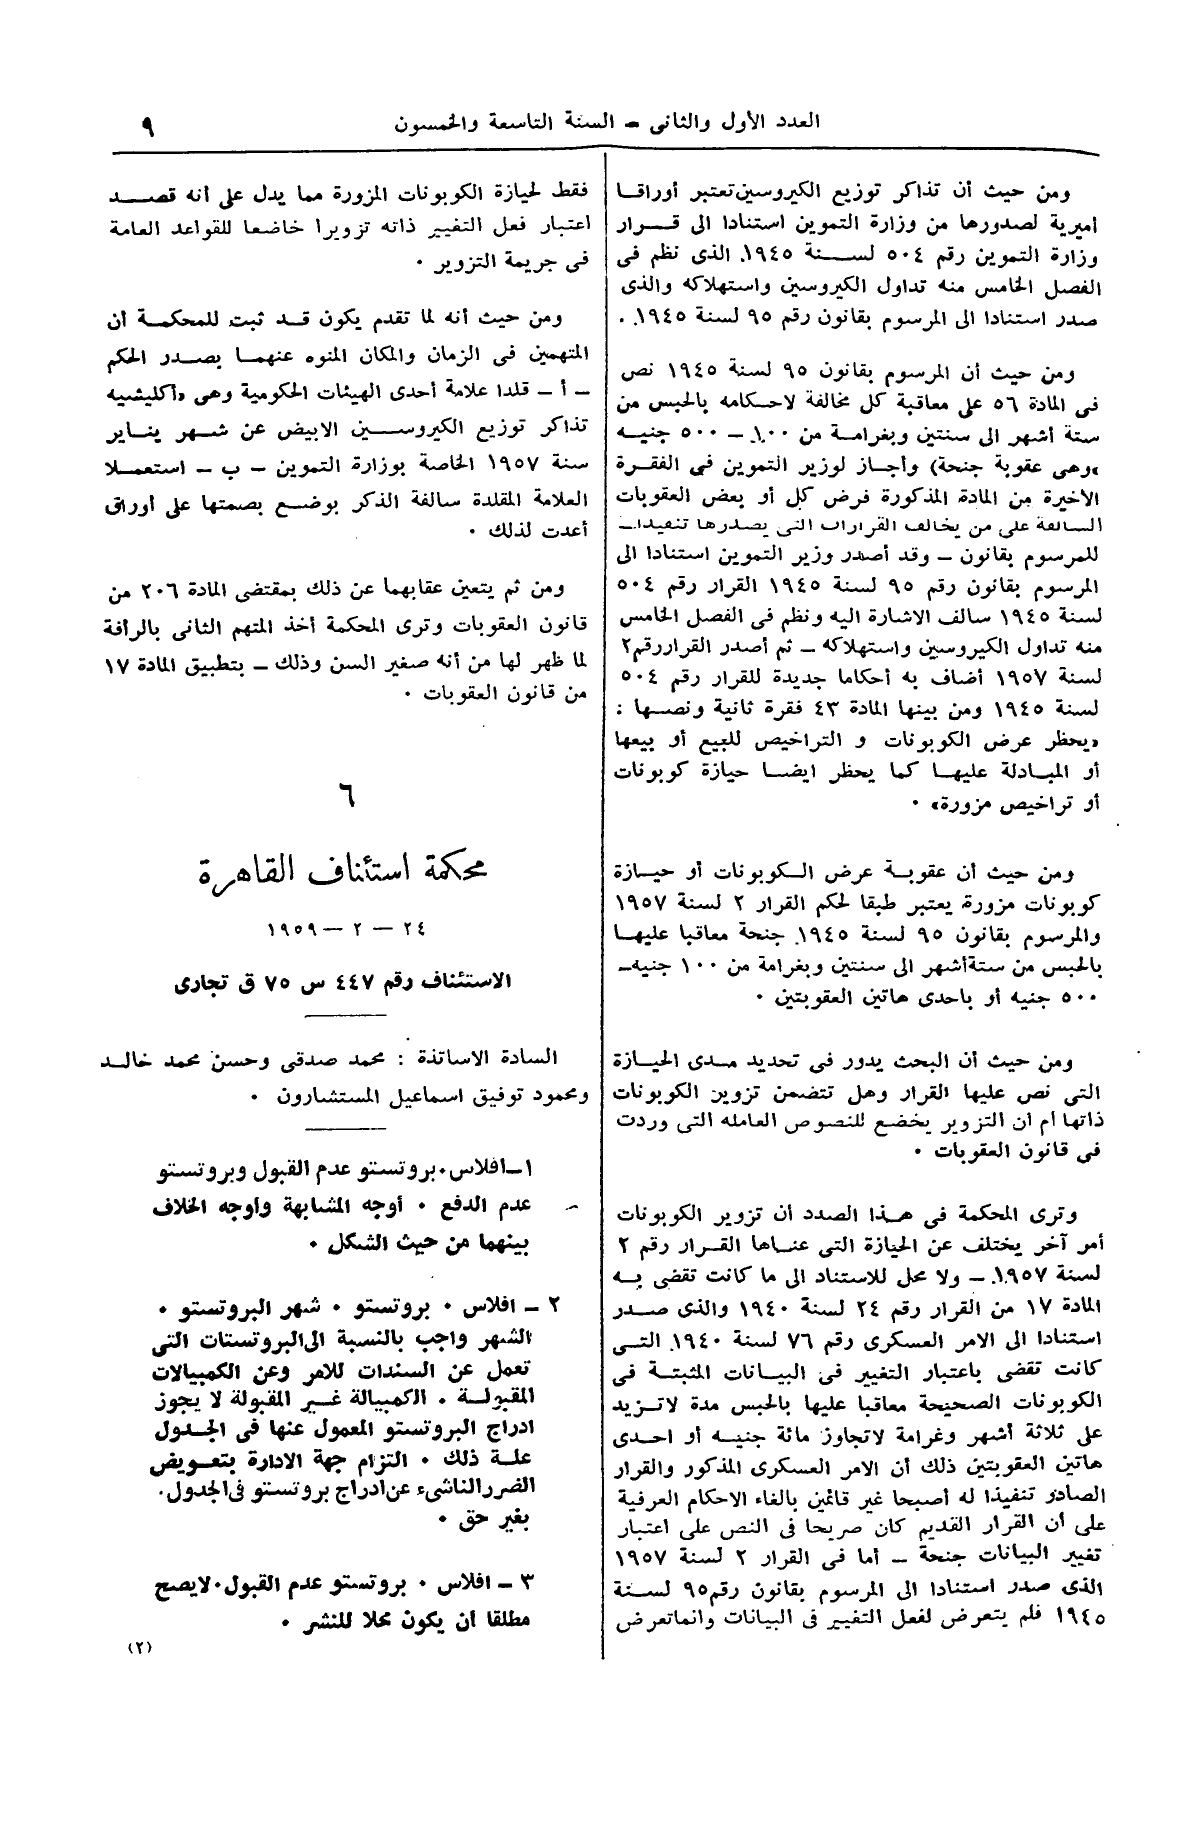 العدد الأول والثانى – السنة التاسعة والخمسون
٩
ومن حيث أن تذاكر توزيع الكيروسين تعتبر أوراقا
اميرية لصدورها من وزارة التموين استنادا الى قرار
وزارة التموين رقم ٥٠٤ لسنة ١٩٤٥ الذى نظم فى
الفصل الخامس منه تداول الكيروسين واستهلاكه والذى
صدر استنادا الى المرسوم بقانون رقم ٩٥ لسنة ١٩٤٥ .
ومن حيث أن المرسوم بقانون ٩٥ لسنة ١٩٤٥ نص
فى المادة ٥٦ على معاقبة كل مخالفة لاحكامه بالحبس من
ستة أشهر الى سنتين وبغرامة من ١٠٠ – ٥٠٠ جنيه
«وهى عقوبة جنحة) وأجاز لوزير التموين فى الفقرة
الاخيرة من المادة المذكورة فرض كل أو بعض العقوبات
السالفة على من يخالف القرارات التى يصدرها تنفيذا
للمرسوم بقانون – وقد أصدر وزير التموين استنادا الى
المرسوم بقانون رقم ٩٥ لسنة ١٩٤٥ القرار رقم ٥٠٤
لسنة ١٩٤٥ سالف الاشارة اليه ونظم فى الفصل الخامس
منه تداول الكيروسين واستهلاكه – ثم أصدر القرار رقم ٢
لسنة ١٩٥٧ أضاف به أحكاما جديدة للقرار رقم ٥٠٤
لسنة ١٩٤٥ ومن بينها المادة ٤٣ فقرة ثانية ونصها :
«يحظر عرض الكوبونات و التراخيص للبيع أو بيعها
أو المبادلة عليها كما يحظر ايضا حيازة كوبونات
أو تراخيص مزورة» .
ومن حيث أن عقوبة عرض الكوبونات أو حيازة
كوبونات مزورة يعتبر طبقا لحكم القرار ٢ لسنة ١٩٥٧
والمرسوم بقانون ٩٥ لسنة ١٩٤٥ جنحة معاقبا عليها
بالحبس من ستة أشهر الى سنتين وبغرامة من ١٠٠ جنيه–
٥٠٠ جنيه أو باحدى هاتين العقوبتين .
ومن حيث أن البحث يدور فى تحديد مدى الحيازة
التى نص عليها القرار وهل تتضمن تزوير الكوبونات
ذاتها أم أن التزوير يخضع للنصوص العامله التى وردت
فى قانون العقوبات .
وترى المحكمة فى هذا الصدد أن تزوير الكوبونات
أمر آخر يختلف عن الحيازة التى عناها القرار رقم ٢
لسنة ١٩٥٧ – ولا محل للاستناد الى ما كانت تقضى به
المادة ١٧ من القرار رقم ٢٤ لسنة ١٩٤٠ والذى صدر
استنادا الى الامر العسكرى رقم ٧٦ لسنة ١٩٤٠ التى
كانت تقضى باعتبار التغيير فى البيانات المثبتة فى
الكوبونات الصحيحة معاقبا عليها بالحبس مدة لا تزيد
على ثلاثة أشهر وغرامة لاتجاوز مائة جنيه أو احدى
هاتين العقوبتين ذلك أن الامر العسكرى المذكور والقرار
الصادر تنفيذا له أصبحا غير قائمين بالغاء الاحكام العرفية
على أن القرار القديم كان صريحا فى النص على اعتبار
تغيير البيانات جنحة – أما فى القرار ٢ لسنة ١٩٥٧
الذى صدر استنادا الى المرسوم بقانون رقم ٩٥ لسنة
١٩٤٥ فلم يتعرض لفعل التغيير فى البيانات وانما تعرض
فقط لحيازة الكوبونات المزورة مما يدل على أنه قصد
اعتبار فعل التغيير ذاته تزويرا خاضعا للقواعد العامة
فى جريمة التزوير .
ومن حيث أنه لما تقدم يكون قد ثبت للمحكمة أن
المتهمين فى الزمان والمكان المنوه عنهما بصدر الحكم
– أ – قلدا علامة أحدى الهيئات الحكومية وهى «أكليشيه
تذاكر توزيع الكيروسين الابيض عن شهر يناير
سنة ١٩٥٧ الخاصة بوزارة التموين – ب – استعملا
العلامة المقلدة سالفة الذكر بوضع بصمتها على أوراق
أعدت لذلك .
ومن ثم يتعين عقابهما عن ذلك بمقتضى المادة ٢٠٦ من
قانون العقوبات وترى المحكمة أخذ المتهم الثانى بالرأفة
لما ظهر لها من أنه صغير السن وذلك – بتطبيق المادة ١٧
من قانون العقوبات .
٦
محكمة استئناف القاهرة
٢٤ – ٢ – ١٩٥٩
الاستئناف رقم ٤٤٧ س ٧٥ ق تجارى
السادة الاساتذة : محمد صدقى وحسن محمد خالد
ومحمود توفيق اسماعيل المستشارون .
١– افلاس . بروتستو عدم القبول وبروتستو
عدم الدفع . أوجه المشابهة واوجه الخلاف
بينهما من حيث الشكل .
٢ – افلاس . بروتستو . شهر البروتستو .
الشهر واجب بالنسبة الى البروتستات التى
تعمل عن السندات للامر وعن الكمبيالات
المقبولة . الكمبيالة غير المقبولة لا يجوز
ادراج البروتستو المعمول عنها فى الجدول
علة ذلك . التزام جهة الادارة بتعويض
الضرر الناشىء عن ادراج بروتستو فى الجدول .
بغير حق .
٣ – افلاس . بروتستو عدم القبول . لا يصح
مطلقا أن يكون محلا للنشر .
(٢)